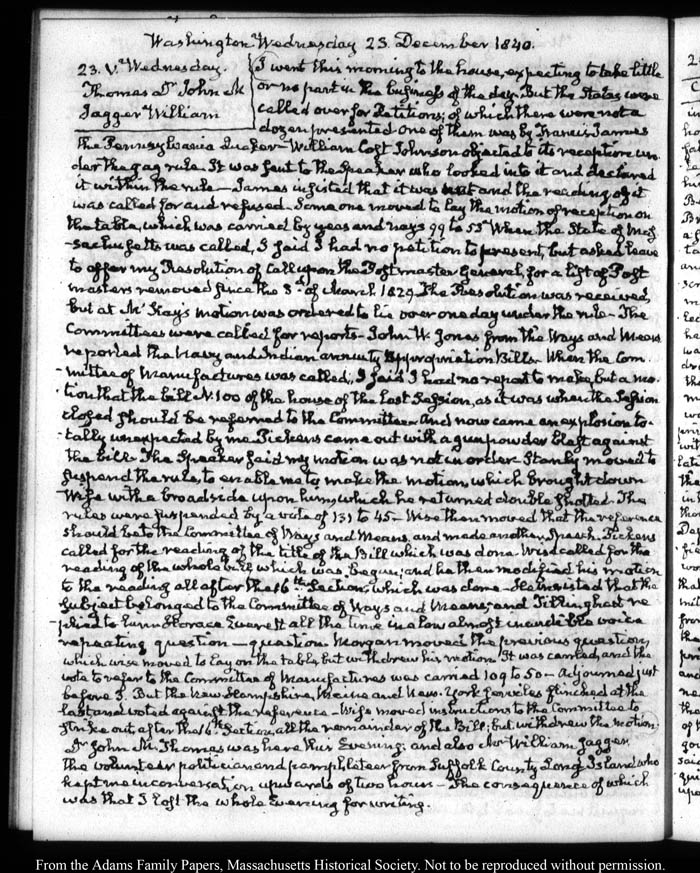 Washington Wednesday 23. December 1840.
23. V. Wednesday.
Thomas Dr John M
Jagger William
I went this morning to the house, expecting to take little
or no part in the business of the day. But the States were
called over for Petitions; of which there were not a
dozen presented. One of them was by Francis James
the Pennsylvania Quaker— William Cost Johnson objected to its reception un-
der the gag rule. It was sent to the Speaker who looked into it and declared
it within the rule— James insisted that it was not and the reading of it
was called for and refused— Some one moved to lay the motion of reception on
the table, which was carried by yeas and nays 99 to 55 When the State of Mas-
-sachusetts was called, I said I had no petition to present, but asked leave
to offer my Resolution of call upon the Postmaster General, for a list of Post
masters removed since the 3d of March 1829. The Resolution was received,
but at Mr Kay's motion was ordered to lie over one day under the rule— The
Committees were called for reports— John W. Jones from the Ways and Means
reported the Navy and Indian annuity Appropriation Bills— When the Com-
-mittee of Manufactures was called, I said I had no report to make, but a mo-
-tion that the bill N. 100 of the house of the last Session, as it was when the Session
closed should be referred to the Committee— And now came an explosion to-
-tally unexpected by me Pickens came out with a gunpowder blast against
the bill— The Speaker said my motion was not in order. Stanly moved to
suspend the rule, to enable me to make the motion, which brought down
Wise with a broadside upon him, which he returned double shotted. The
rules were suspended by a vote of 131 to 45— Wise then moved that the reference
should be to the Committee of Ways and Means, and made another Speech. Pickens
called for the reading of the title of the Bill which was done. Wise called for the
reading of the whole bill which was begun; and he then modified his motion
to the reading all after the 16th Section, which was done— He insisted that the
subject belonged to the Committee of Ways and Means, and Tillinghast re
-plied to him Horace Everett all the time in a low almost inaudible voice
repeating question— question. Morgan moved the previous question,
which wise moved to lay on the table, but withdrew his motion. It was carried, and the
vote to refer to the Committee of Manufactures was carried 109 to 50— Adjourned just
before 3. But the New Hampshire, Maine and New-York serviles flinched at the
last and voted against the reference— Wise moved instructions to the Committee to
strike out after the 16th Section, all the remainder of the Bill; but withdrew the motion.
Dr John M. Thomas was here this Evening; and also Mr William Jagger,
the volunteer politician and pamphleteer from Suffolk County Long Island who
kept me in conversation upwards of two hours— The consequence of which
was that I lost the whole Evening for writing.
From the Adams Family Papers, Massachusetts Historical Society. Not to be reproduced without permission.